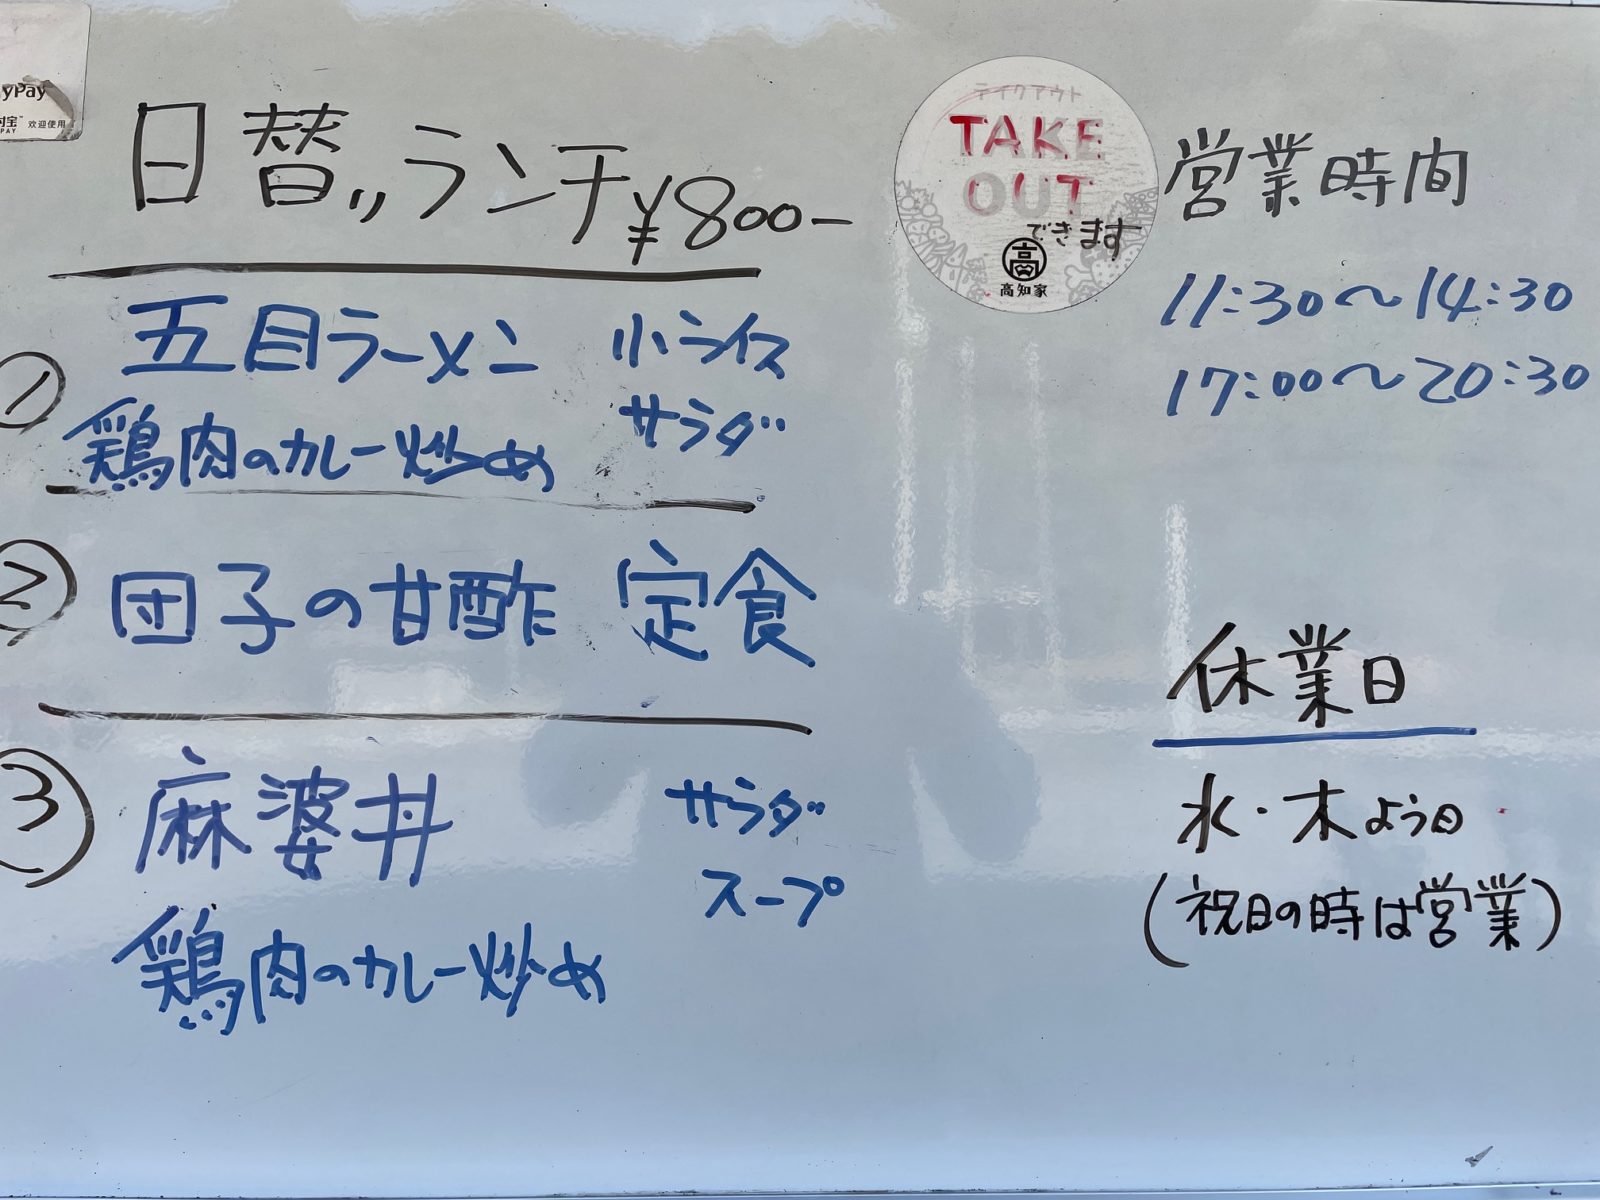 yPay
付宝 欢迎使用
PAY
日替〃ランチ ¥800-
① 五目ラーメン 小ライス
鶏肉のカレー炒め サラダ
② 団子の甘酢 定食
③ 麻婆丼 サラダ
スープ
鶏肉のカレー炒め
テイクアウト
TAKE
OUT
できます
高知家
営業時間
11:30〜14:30
17:00〜20:30
休業日
水・木よう日
(祝日の時は営業)